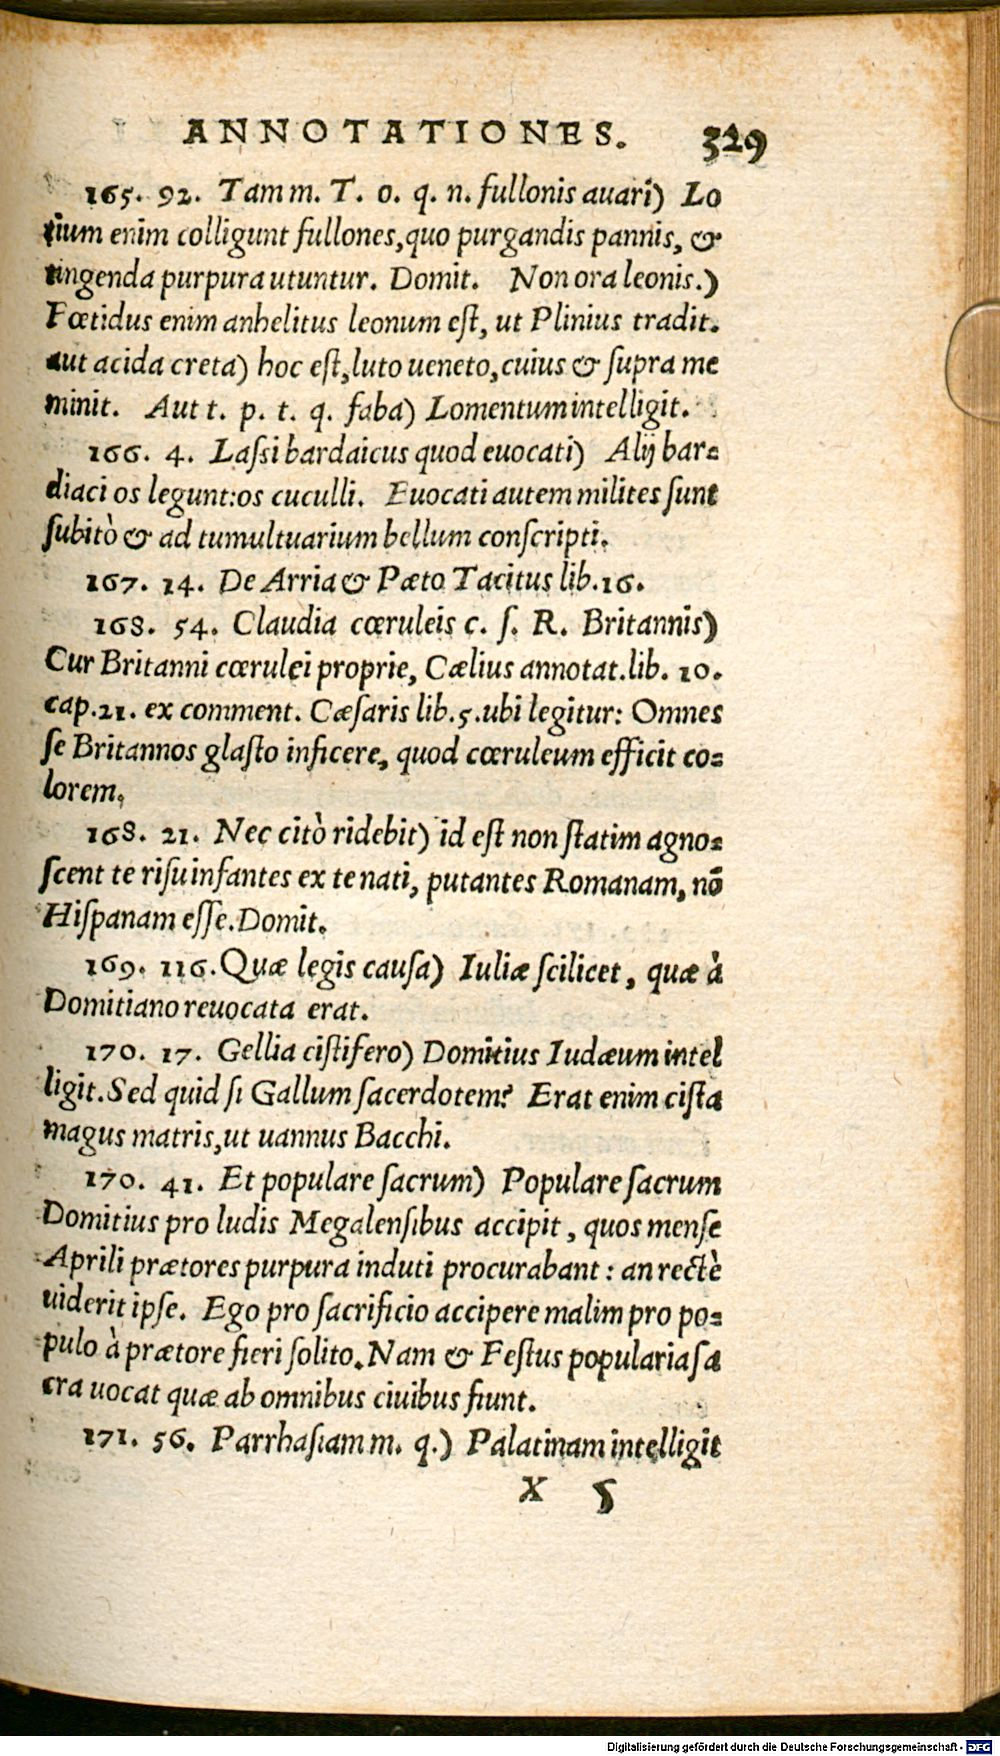 ANNOTATIONES. 329
165. 92. Tam m. T. o. q. n. fullonis auari) Lo
tium enim colligunt fullones, quo purgandis pannis, &
tingenda purpura utuntur. Domit. Non ora leonis.)
Fœtidus enim anhelitus leonum eſt, ut Plinius tradit.
aut acida creta) hoc eſt, luto ueneto, cuius & ſupra me
minit. Aut t. p. t. q. faba) Lomentum intelligit.
166. 4. Laſsi bardaicus quod euocati) Alij bar=
diaci os legunt: os cuculli. Euocati autem milites ſunt
ſubitò & ad tumultuarium bellum conſcripti.
167. 14. De Arria & Pæto Tacitus lib. 16.
168. 54. Claudia cœruleis c. ſ. R. Britannis)
Cur Britanni cœrulei proprie, Cælius annotat. lib. 10.
cap. 21. ex comment. Cæſaris lib. 5. ubi legitur: Omnes
ſe Britannos glaſto inficere, quod cœruleum efficit co=
lorem.
168. 21. Nec citò ridebit) id eſt non ſtatim agno=
ſcent te riſu infantes ex te nati, putantes Romanam, nõ
Hiſpanam eſſe. Domit.
169. 116. Quæ legis cauſa) Iuliæ ſcilicet, quæ à
Domitiano reuocata erat.
170. 17. Gellia ciſtifero) Domitius Iudæum intel
ligit. Sed quid ſi Gallum ſacerdotem? Erat enim ciſta
magus matris, ut uannus Bacchi.
170. 41. Et populare ſacrum) Populare ſacrum
Domitius pro ludis Megalenſibus accipit, quos menſe
Aprili prætores purpura induti procurabant: an rectè
uiderit ipſe. Ego pro ſacrificio accipere malim pro po=
pulo à prætore fieri ſolito. Nam & Feſtus popularia ſa
cra uocat quæ ab omnibus ciuibus fiunt.
171. 56. Parrhaſiam m. q.) Palatinam intelligit
X 5
Digitalisierung gefördert durch die Deutsche Forschungsgemeinschaft - DFG